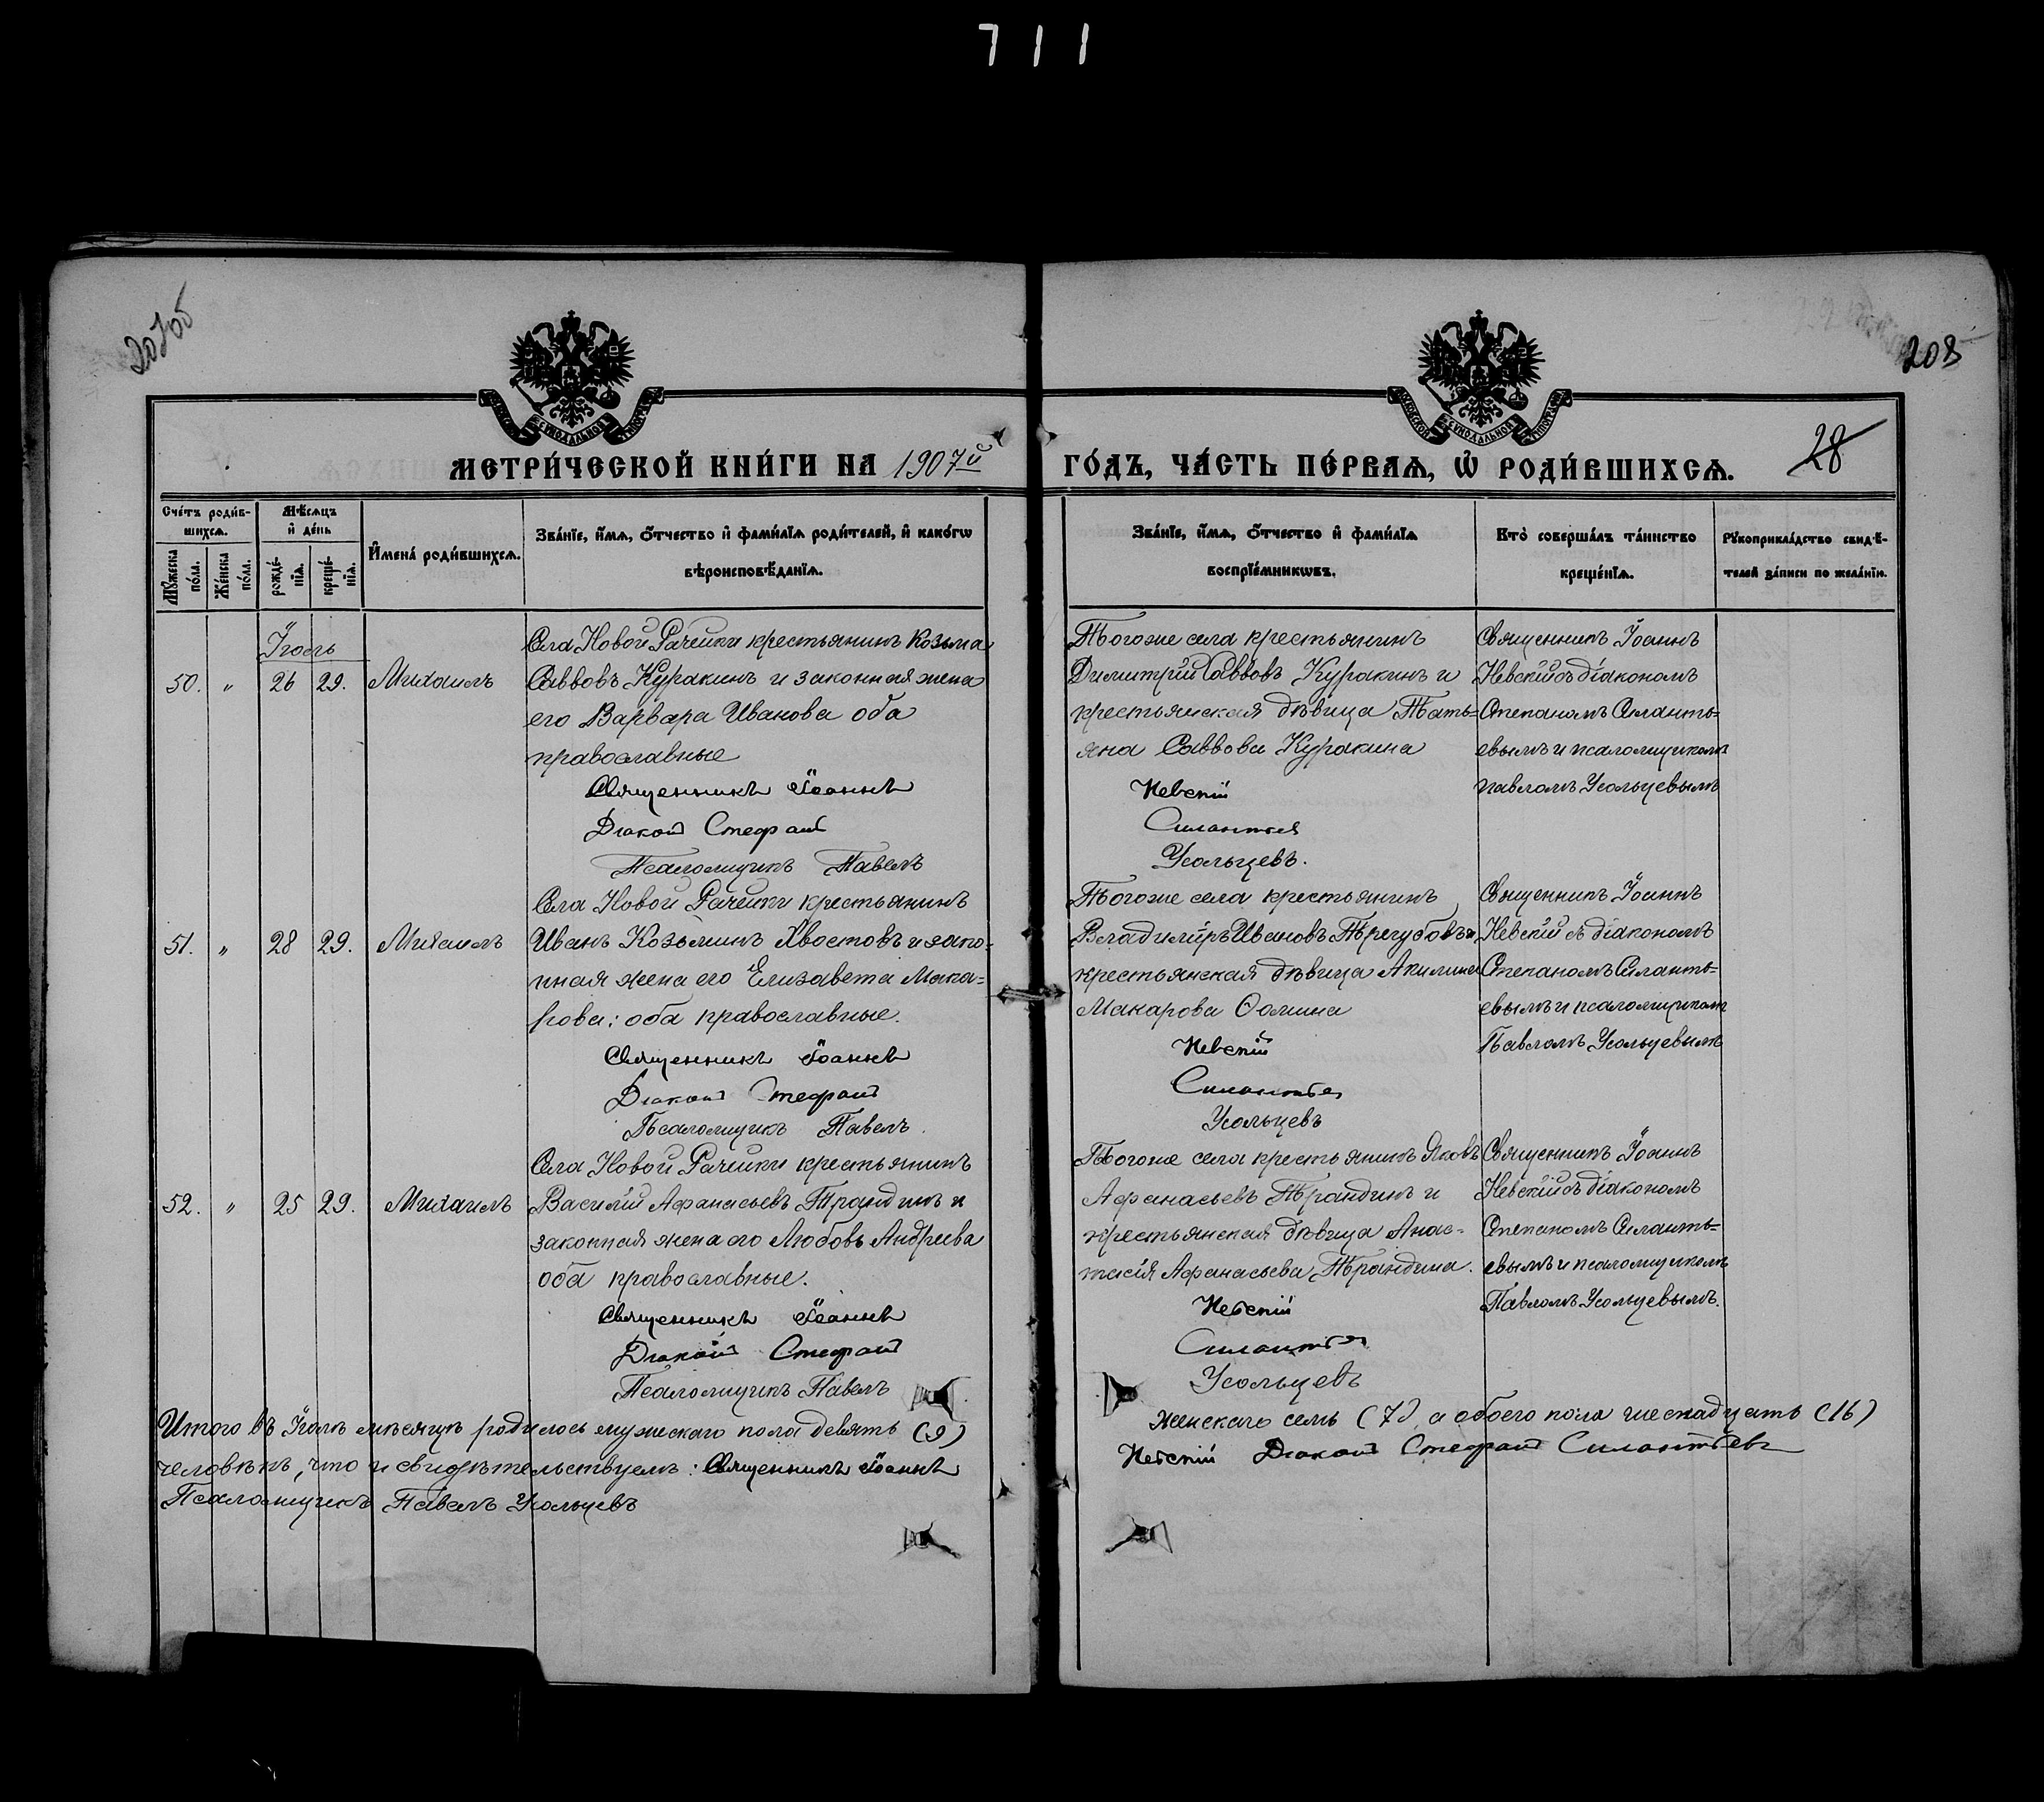 711
207об
208
28
МЕТРИ́ЧЕСКОЙ КНИ́ГИ НА 1907й
ГО́ДЪ, ЧА́СТЬ ПЕ́РВАѦ, Ѡ҆ РОДИ́ВШИХСѦ.
Сче́тъ роди́в-
шихсѧ.
Мѣ́сѧцъ
и҆ де́нь
Мꙋ́жеска
по́ла.
Же́нска
по́ла.
рожде́-
нїѧ.
креще́-
нїѧ.
И҆мена̀ роди́вшихсѧ.
Зва́нїе, и҆́мѧ, ѻ҆́тчество и҆ фами́лїѧ роди́телей, и҆ како́гѡ
вѣроисповѣ́данїѧ.
Зва́нїе, и҆́мѧ, ѻ҆́тчество и҆ фами́лїѧ
воспрїе́мникѡвъ.
Кто̀ соверша́лъ та́инство
креще́нїѧ.
Рꙋкоприкла́дство свидѣ́-
телей за́писи по жела́нїю.
Іюль
50. " 26 29. Михаилъ
Села Новой Рачейки крестьянинъ Козьма
Саввовъ Куракинъ и законная жена
его Варвара Иванова оба
православные
Священникъ Іоаннъ
Діаконъ Стефанъ
Псаломщикъ Павелъ
Тогоже села крестьянинъ
Димитрій Саввовъ Куракинъ и
крестьянская дѣвица Тать=
яна Саввова Куракина
Невскій
Силантьев
Усольцевъ.
Священникъ Іоаннъ
Невскій съ діакономъ
Степаномъ Силанть=
евымъ и псаломщикомъ
Павломъ Усольцевымъ
51. " 28 29. Михаилъ
Села Новой Рачейки крестьянинъ
Иванъ Козьминъ Хвостовъ и зако-
нная жена его Елизавета Мака=
рова: оба православные.
Священникъ Іоаннъ
Діаконъ Стефанъ
Псаломщикъ Павелъ.
Тогоже села крестьянинъ
Владиміръ Ивановъ Трегубовъ и
крестьянская дѣвица Акилина
Макарова Ѳомина
Невскій
Силантьев
Усольцевъ
Священникъ Іоаннъ
Невскій съ діакономъ
Степаномъ Силанть=
евымъ и псаломщикомъ
Павломъ Усольцевымъ
52. " 25 29. Михаилъ
Села Новой Рачейки крестьянинъ
Василій Афанасьевъ Трандинъ и
законная жена его Любовь Андреева
оба православные.
Священникъ Іоаннъ
Діаконъ Стефанъ
Псаломщикъ Павелъ
Тогоже села крестьянинъ Яковъ
Афанасьевъ Трандинъ и
крестьянская дѣвица Анас-
тасія Афанасьева Трандина.
Невскій
Силантьев
Усольцевъ
Священникъ Іоаннъ
Невскій съ діакономъ
Степаномъ Силанть=
евымъ и псаломщикомъ
Павломъ Усольцевымъ.
Итого въ Іюлѣ мѣсяцѣ родилось мужескаго пола девять (9)
женскаго семь (7), а обоего пола шестнадцать (16)
человѣкъ, что и свидѣтельствуемъ: Священникъ Іоаннъ
Невскій Діаконъ Стефанъ Силантьевъ
Псаломщикъ Павелъ Усольцевъ